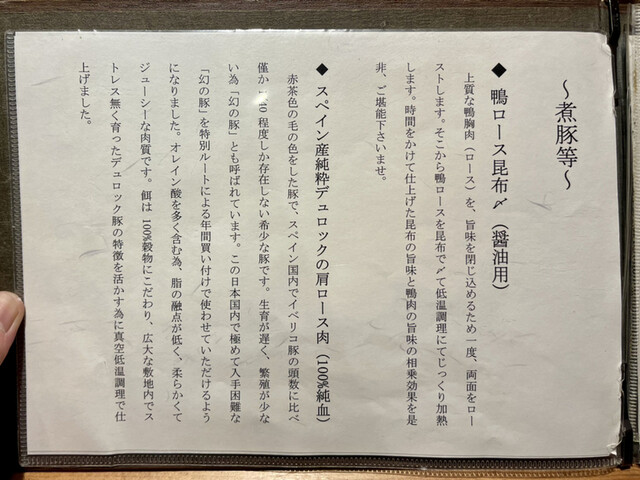 ～煮豚等～
◆ 鴨ロース昆布〆（醤油用）
上質な鴨胸肉（ロース）を、旨味を閉じ込めるため一度、両面をロー
ストします。そこから鴨ロースを昆布で〆て低温調理にてじっくり加熱
します。時間をかけて仕上げた昆布の旨味と鴨肉の旨味の相乗効果を是
非、ご堪能下さいませ。
◆ スペイン産純粋デュロックの肩ロース肉（100%純血）
赤茶色の毛の色をした豚で、スペイン国内でイベリコ豚の頭数に比べ
僅か 1/10 程度しか存在しない希少な豚です。生育が遅く、繁殖が少な
い為「幻の豚」とも呼ばれています。この日本国内で極めて入手困難な
「幻の豚」を特別ルートによる年間買い付けで使わせていただけるよう
になりました。オレイン酸を多く含む為、脂の融点が低く、柔らかくて
ジューシーな肉質です。餌は 100%穀物にこだわり、広大な敷地内でス
トレス無く育ったデュロック豚の特徴を活かす為に真空低温調理で仕
上げました。